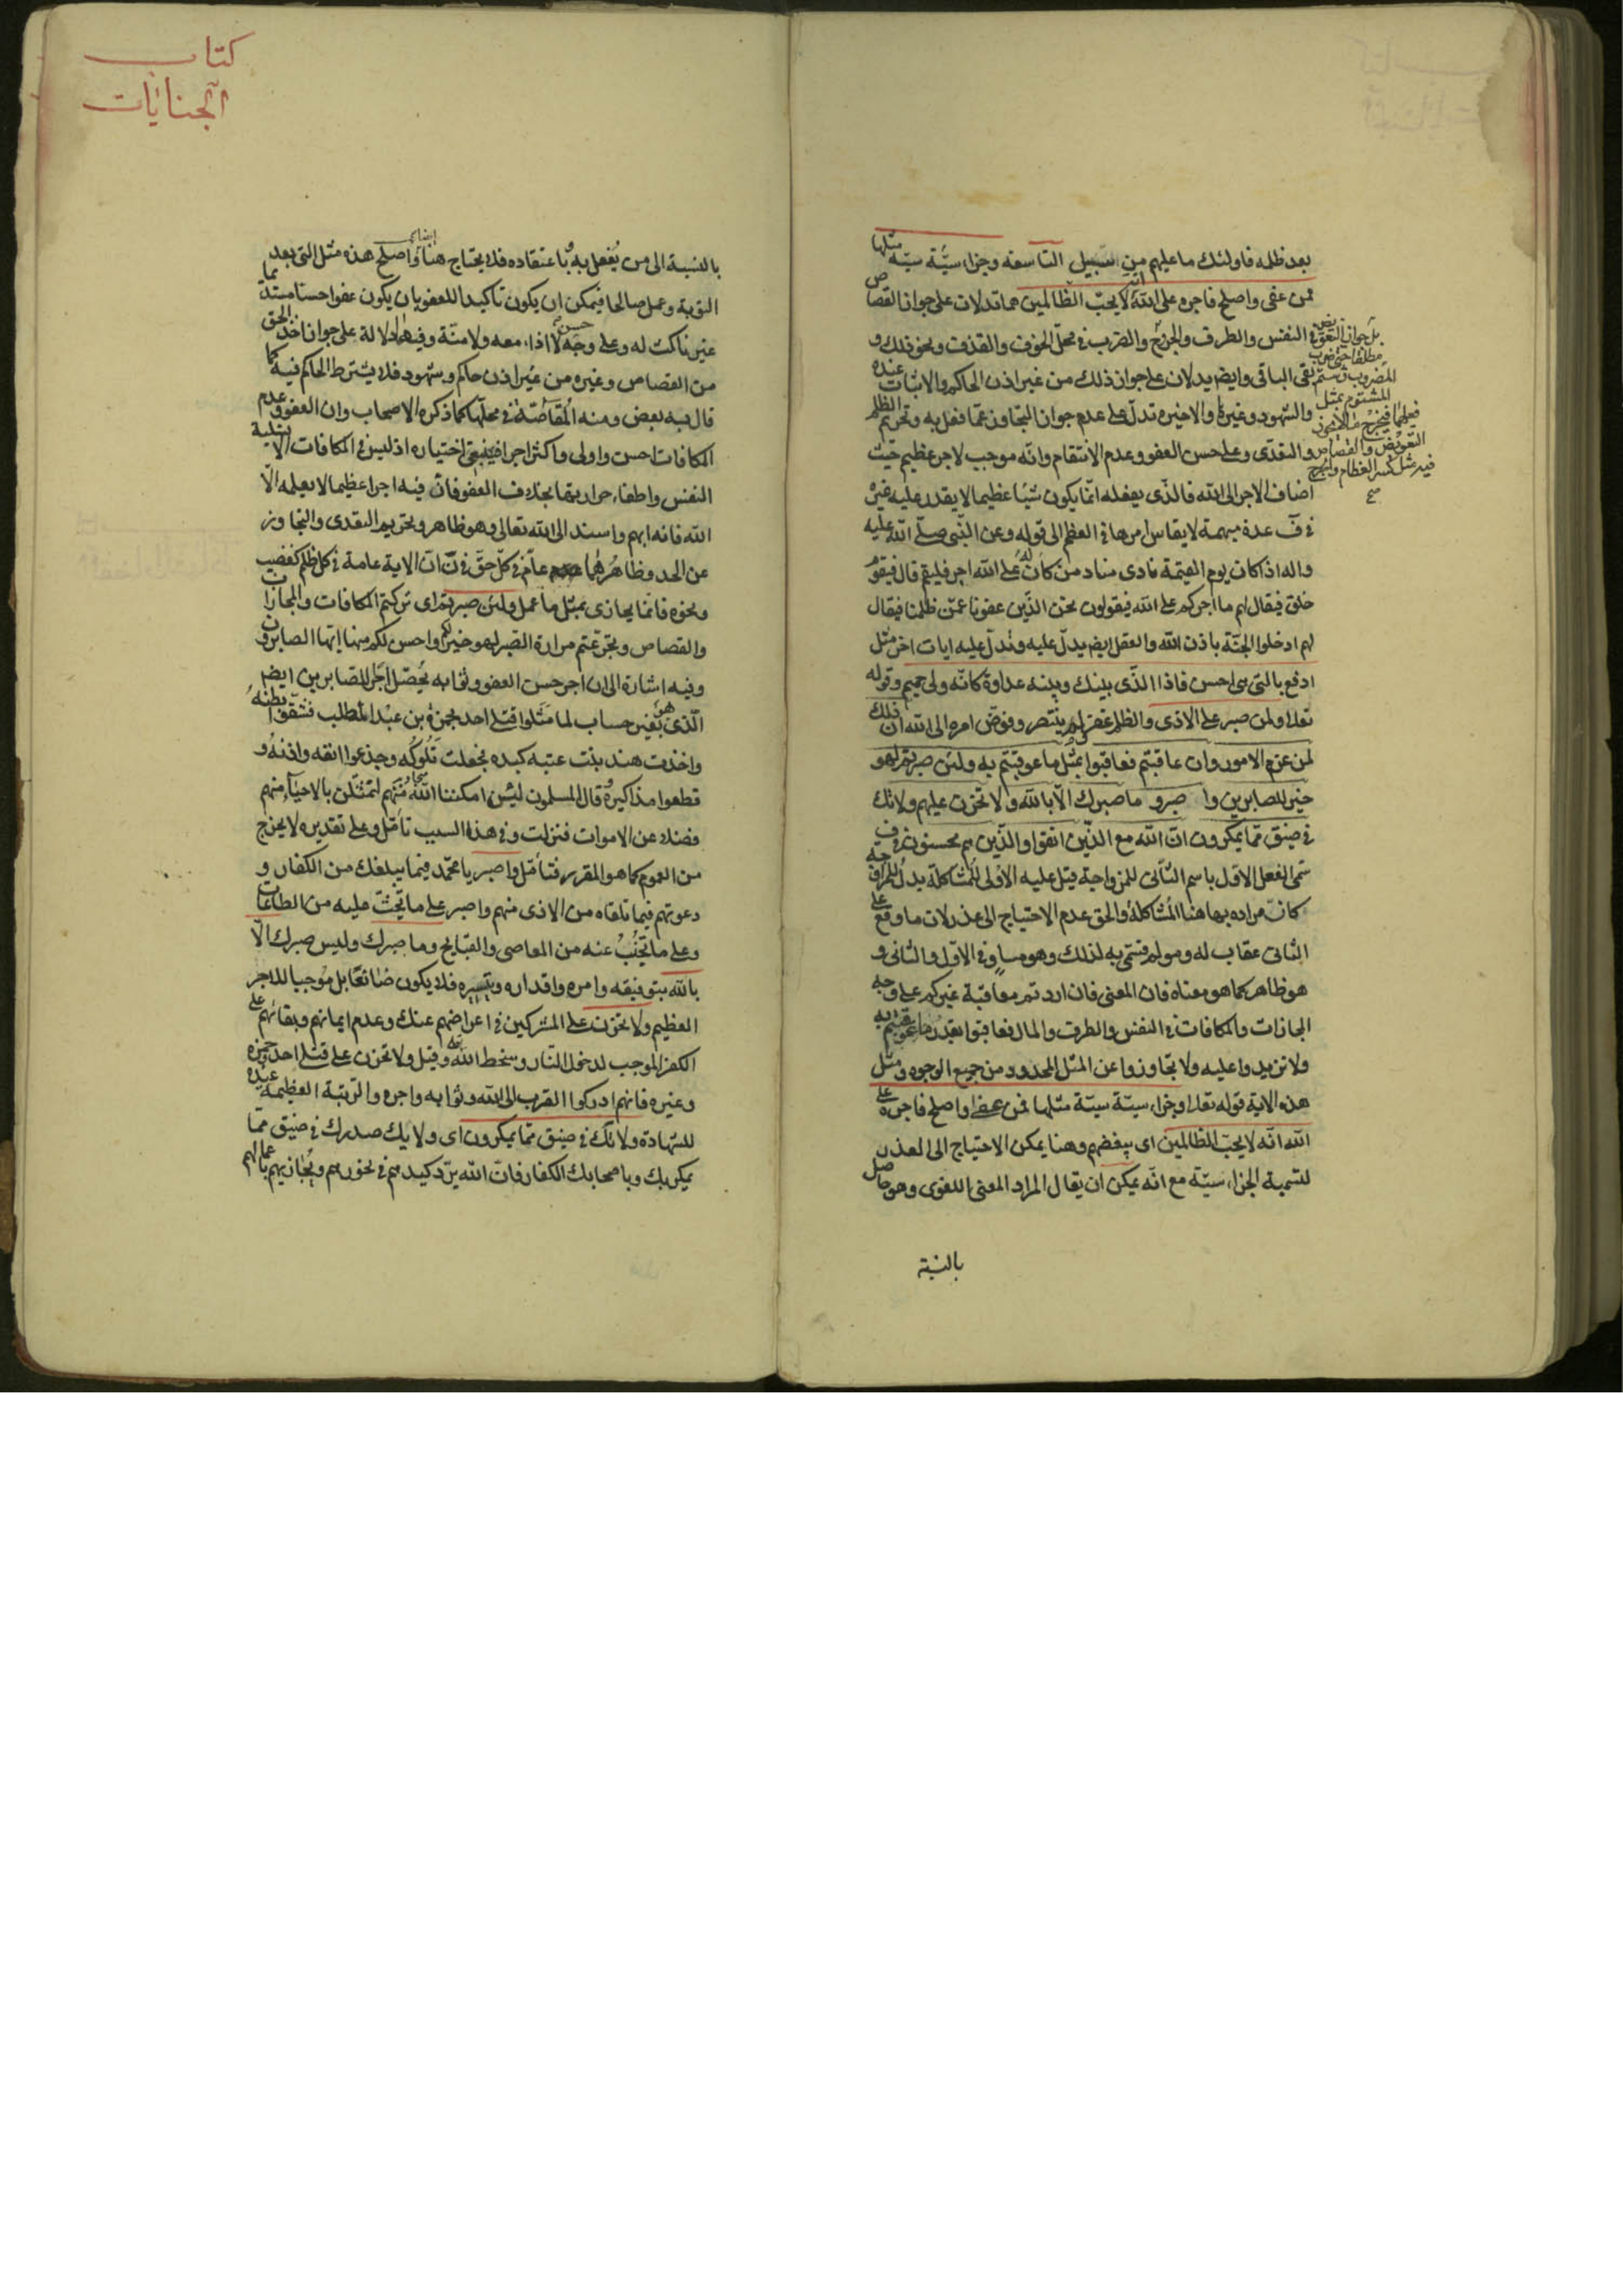 بعد ظلمه فاولئك ما عليهم من سبيل التاسعة وجزاء سيئة سيئة مثلها
فمن عفى واصلح فاجره على الله انه لا يحب الظالمين هما تدلان على جواز القصاص
في النفس والطرف والجروح والضرب في محل الخوف والقذف ونحو ذلك و
بقى الباقي وايضا يدلان على جواز ذلك من غير اذن الحاكم والاثبات عنده
والشهود وغيرها والاخيرة تدل على عدم جواز التجاوز عما فعل به وتحريم الظلم
والتعدي وعلى حسن العفو وعدم الانتقام وانه موجب لاجر عظيم حيث
اضاف الاجر الى الله فالذي يفعله انما يكون شيئا عظيما لا يقدر عليه غيره
في ف عدة مبهمة لا يقاس امرها في العظم الى قوله وعن النبي صلى الله عليه
واله اذا كان يوم القيمة نادى مناد من كان له على الله اجر فليقم قال فيقوم
خلق فيقال لهم ما اجركم على الله فيقولون نحن الذين عفونا عمن ظلمنا فيقال
لهم ادخلوا الجنة باذن الله والعقل ايضا يدل عليه وتدل عليه ايات اخر مثل
ادفع بالتي هي احسن فاذا الذي بينك وبينه عداوة كانه ولي حميم وقوله
تعالى ولمن صبر على الاذى والظلم وغفر لم ينتصر وفوض امره الى الله ان ذلك
لمن عزم الامور وان عاقبتم فعاقبوا بمثل ما عوقبتم به ولئن صبرتم لهو
خير للصابرين واصبر وما صبرك الا بالله ولا تحزن عليهم ولا تك
في ضيق مما يمكرون ان الله مع الذين اتقوا والذين هم محسنون في ف
سمى الفعل الاول باسم الثاني للمزاوجة قيل عليه الاولى للمشاكلة بدل للمزاوجة
كان مراده بها هنا المشاكلة والحق عدم الاحتياج الى عذر لان ما وقع على
الثاني عقاب له ومولم فسمى به لذلك وهو مساو في الاول والثاني و
هو ظاهر كما هو معناه فان المعنى فان اردتم معاقبة غيركم على وجه
المجازات والمكافات في النفس والطرف والمال فعاقبوا بقدر ما عوقبتم به
ولا تزيدوا عليه ولا تجاوزوا عن المثل المحدود من جميع الوجوه ومثل
هذه الاية قوله تعالى وجزاء سيئة سيئة مثلها فمن عفى واصلح فاجره على
الله انه لا يحب الظالمين اى يبغضهم وهنا يمكن الاحتياج الى العذر
لتسمية الجزاء سيئة مع انه يمكن ان يقال المراد المعنى اللغوى وهو حاصل
بالنسبة
بل جواز التعويض
مطلقا حتى ضرب
المضروب وشتم
المشتوم بمثل
التعويض والقصاص
فيه مثل كسر العظام والجرح
صح
كتاب
الجنايات
بالنسبة الى من يفعل به وباعتقاده فلا يحتاج هنا ايضا واصلح هذه مثل التي بعد
التوبة وعمل صالحا فيمكن ان يكون تاكيدا للعفو بان يكون عفوا حسنا
غير ناكث له وعلى وجه حسن لا اذاء معه ولا منة وفيهما دلالة على جواز اخذ الحق
من القصاص وغيره من غير اذن حاكم وشهود فلا يشترط الحاكم فيه كما
قال به بعض ومنه المقاصة في محلها كما ذكره الاصحاب وان العفو وعدم
المكافات احسن واولى واكثر اجرا فينبغي اختياره اذ ليس في المكافات الا تسلية
النفس واطفاء حرارتها بخلاف العفو فان فيه اجرا عظيما لا يعلمه الا
الله فانه ابهم واسند الى الله تعالى وهو ظاهر وتحريم التعدى والتجاوز
عن الحد وظاهرهما عام في كل حق في ن ان الاية عامة في كل ظلم كغصب
ونحوه فانما يجازى بمثل ما عمل ولئن صبرتم اى تركتم المكافات والمجازات
والقصاص وتجرعتم مرارة الصبر لهو خير لكم واحسن لكم منها ايها الصابرون
وفيه اشارة الى ان اجر حسن العفو وثوابه يحصل اجر للصابرين ايضا
الذي هو بغير حساب لما مثلوا قتلى احد بحمزة بن عبد المطلب فشقوا بطنه
واخذت هند بنت عتبه كبده فجعلت تلوكه وجدعوا انفه واذنه و
قطعوا مذاكيره قال المسلمون لئن امكننا الله منهم لنمثلن بالاحياء منهم
فضلا عن الاموات فنزلت وفي هذا السبب تامل وعلى تقديره لا يخرج
من العموم كما هو المقرر فتامل واصبر يا محمد فيما يبلغك من الكفار و
دعوتهم فيما تلقاه من الاذى منهم واصبر على ما تحث عليه من الطاعات
وعلى ما تجنب عنه من المعاصي والقبايح وما صبرك وليس صبرك الا
بالله بتوفيقه وامره واقداره وتيسيره فلا يكون ضائعا بل موجبا للاجر
العظيم ولا تحزن على المشركين في اعراضهم عنك وعدم ايمانهم وبقائهم على
الكفر الموجب لدخول النار وسخط الله وقيل ولا تحزن على قتلى احد حمزة
وغيره فانهم ادركوا القرب الى الله وثوابه واجره والرتبة العظيمة عنده
للشهادة ولا تك في ضيق مما يمكرون اى ولا يك صدرك في ضيق مما
يمكر بك وباصحابك الكفار فان الله يرد كيدهم في نحورهم ويجازيهم باعمالهم